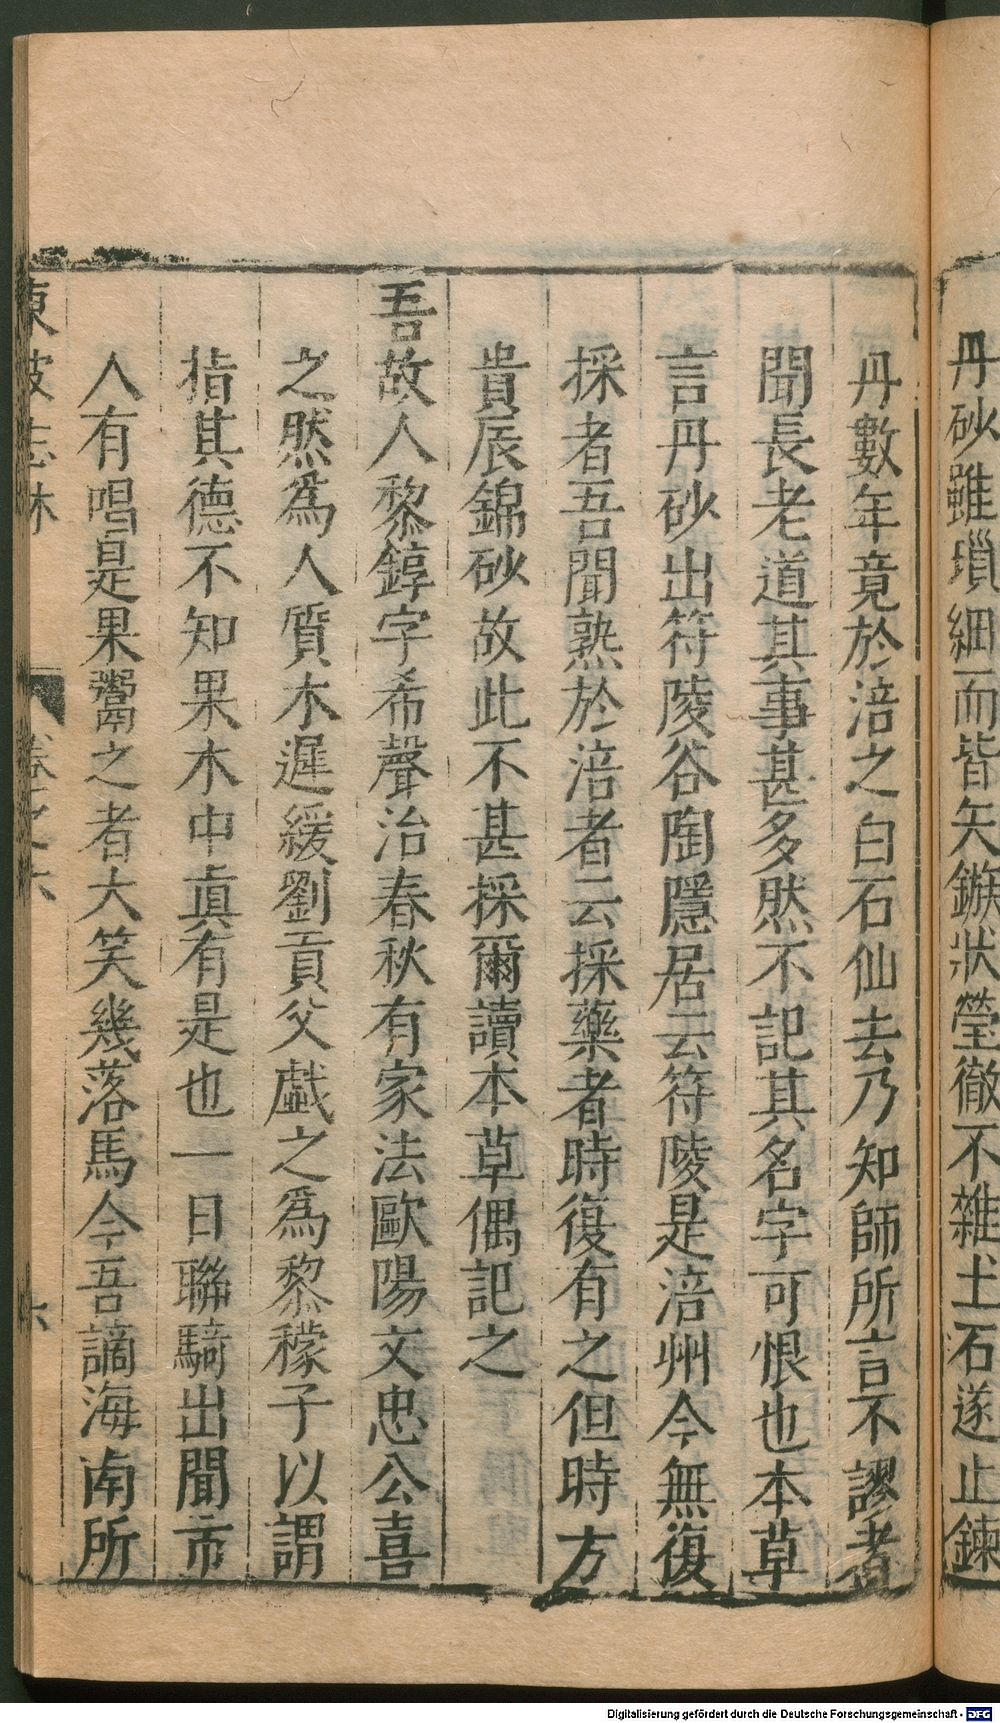 丹砂雖瑣細而皆矢鏃狀瑩徹不雜土石遂止鍊
丹數年竟於涪之白石仙去乃知師所言不謬者
聞長老道其事甚多然不記其名字可恨也本草
言丹砂出符陵谷陶隱居云符陵是涪州今無復
採者吾聞熟於涪者云採藥者時復有之但時方
貴辰錦砂故此不甚採爾讀本草偶記之
吾故人黎錞字希聲治春秋有家法歐陽文忠公喜
之然為人質木遲緩劉貢父戲之為黎檬子以謂
指其德不知果木中真有是也一日聯騎出聞市
人有唱是果鬻之者大笑幾落馬今吾謫海南所
東坡志林 卷之六 六
Digitalisierung gefördert durch die Deutsche Forschungsgemeinschaft - DFG